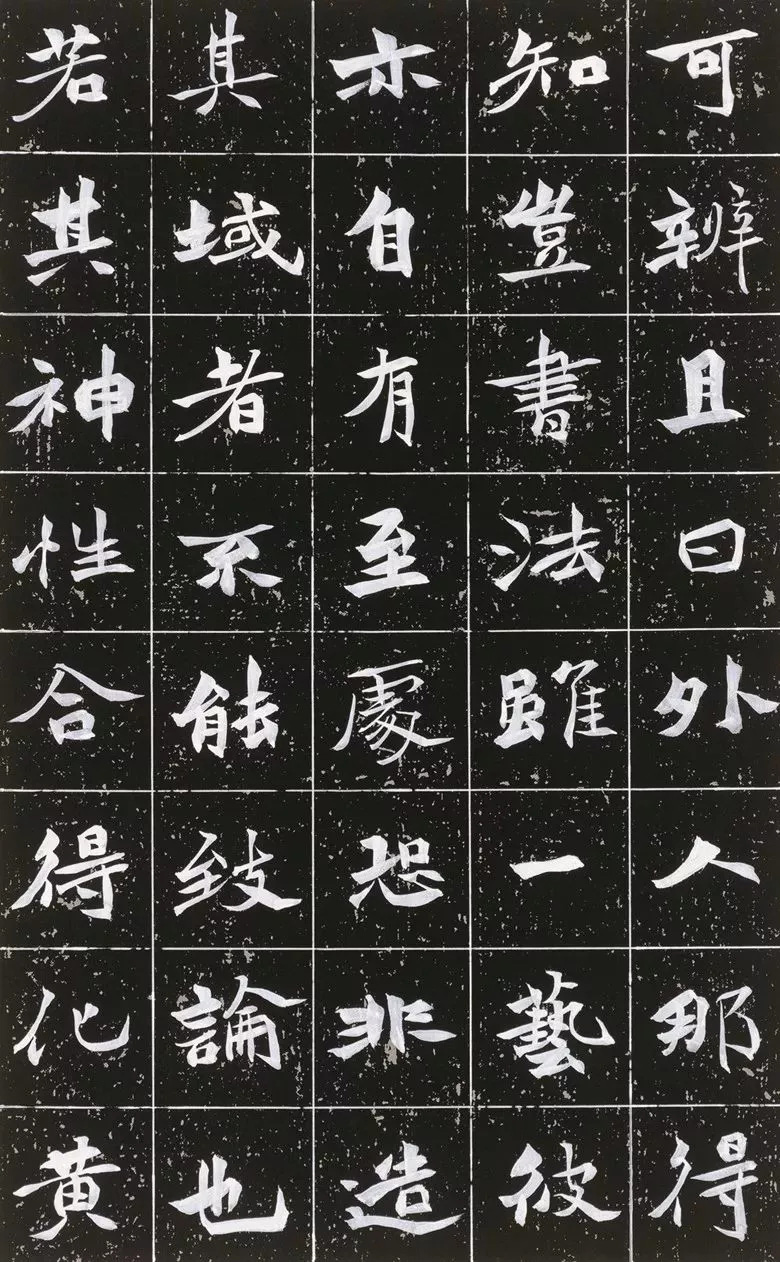 可辨且曰外人那得
知豈書法雖一藝彼
亦自有至處恐非造
其域者不能致論也
若其神性合得化黄